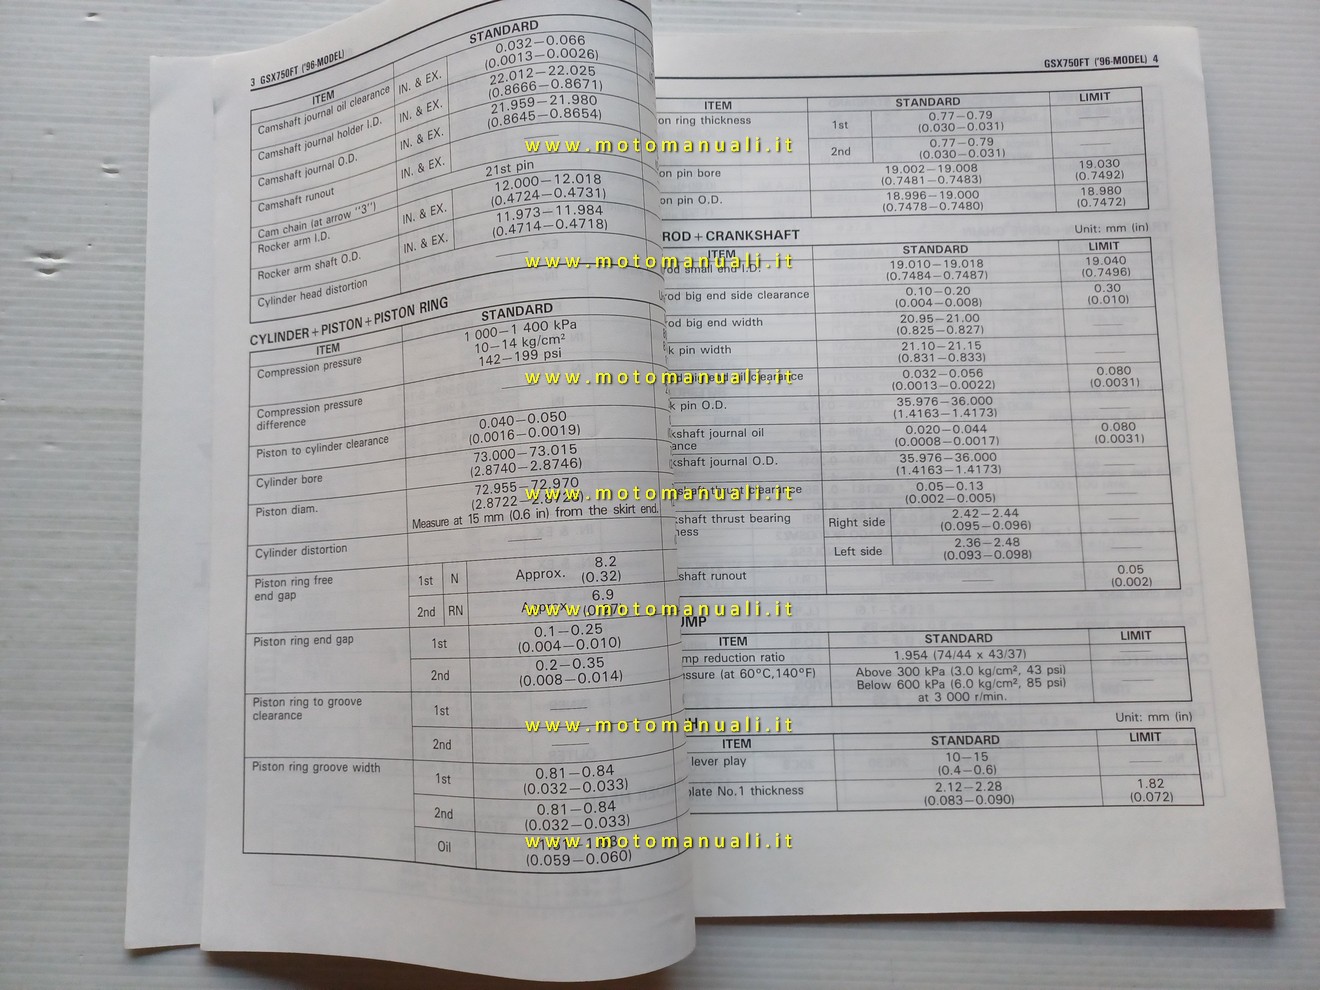 3 GSX750FT ('96-MODEL)
ITEM STANDARD
Camshaft journal oil clearance IN. & EX. 0.032—0.066
(0.0013—0.0026)
Camshaft journal holder I.D. IN. & EX. 22.012—22.025
(0.8666—0.8671)
Camshaft journal O.D. IN. & EX. 21.959—21.980
(0.8645—0.8654)
Camshaft runout IN. & EX. ——
Cam chain (at arrow "3") 21st pin
Rocker arm I.D. IN. & EX. 12.000—12.018
(0.4724—0.4731)
Rocker arm shaft O.D. IN. & EX. 11.973—11.984
(0.4714—0.4718)
Cylinder head distortion ——
CYLINDER+PISTON+PISTON RING
ITEM STANDARD
Compression pressure 1 000—1 400 kPa
10—14 kg/cm²
142—199 psi
Compression pressure
difference ——
Piston to cylinder clearance 0.040—0.050
(0.0016—0.0019)
Cylinder bore 73.000—73.015
(2.8740—2.8746)
Piston diam. 72.955—72.970
(2.8722—
Measure at 15 mm (0.6 in) from the skirt end.
Cylinder distortion ——
Piston ring free
end gap 1st N Approx. 8.2
(0.32)
2nd RN Approx. 6.9
Piston ring end gap 1st 0.1—0.25
(0.004—0.010)
2nd 0.2—0.35
(0.008—0.014)
Piston ring to groove
clearance 1st ——
2nd ——
Piston ring groove width 1st 0.81—0.84
(0.032—0.033)
2nd 0.81—0.84
(0.032—0.033)
Oil
(0.059—0.060)
GSX750FT ('96-MODEL) 4
ITEM STANDARD LIMIT
on ring thickness 1st 0.77—0.79
(0.030—0.031) ——
2nd 0.77—0.79
(0.030—0.031) ——
on pin bore 19.002—19.008
(0.7481—0.7483) 19.030
(0.7492)
on pin O.D. 18.996—19.000
(0.7478—0.7480) 18.980
(0.7472)
ROD+CRANKSHAFT Unit: mm (in)
ITEM STANDARD LIMIT
rod small end I.D. 19.010—19.018
(0.7484—0.7487) 19.040
(0.7496)
rod big end side clearance 0.10—0.20
(0.004—0.008) 0.30
(0.010)
rod big end width 20.95—21.00
(0.825—0.827) ——
k pin width 21.10—21.15
(0.831—0.833) ——
big end oil clearance 0.032—0.056
(0.0013—0.0022) 0.080
(0.0031)
k pin O.D. 35.976—36.000
(1.4163—1.4173) ——
kshaft journal oil
ance 0.020—0.044
(0.0008—0.0017) 0.080
(0.0031)
kshaft journal O.D. 35.976—36.000
(1.4163—1.4173) ——
shaft thrust clearance 0.05—0.13
(0.002—0.005) ——
shaft thrust bearing
ness Right side 2.42—2.44
(0.095—0.096) ——
Left side 2.36—2.48
(0.093—0.098) ——
shaft runout —— 0.05
(0.002)
UMP
ITEM STANDARD LIMIT
mp reduction ratio 1.954 (74/44 x 43/37) ——
ssure (at 60°C,140°F) Above 300 kPa (3.0 kg/cm², 43 psi)
Below 600 kPa (6.0 kg/cm², 85 psi)
at 3 000 r/min. ——
H Unit: mm (in)
ITEM STANDARD LIMIT
lever play 10—15
(0.4—0.6) ——
plate No.1 thickness 2.12—2.28
(0.083—0.090) 1.82
(0.072)
www.motomanuali.it
www.motomanuali.it
www.motomanuali.it
www.motomanuali.it
www.motomanuali.it
www.motomanuali.it
www.motomanuali.it